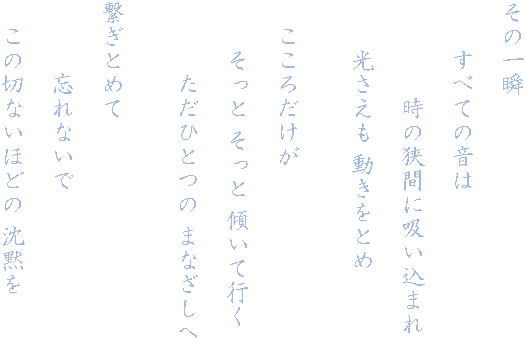 その一瞬
すべての音は
時の狭間に吸い込まれ
光さえも 動きをとめ
こころだけが
そっと そっと 傾いて行く
ただひとつの まなざしへ
繋ぎとめて
忘れないで
この切ないほどの 沈黙を